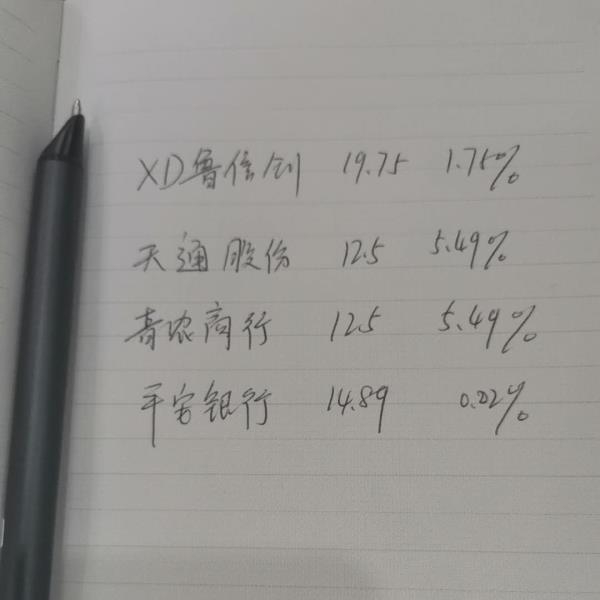 XD鲁信创 19.75 1.75%
天通股份 12.5 5.49%
青农商行 12.5 5.49%
平安银行 14.89 0.02%